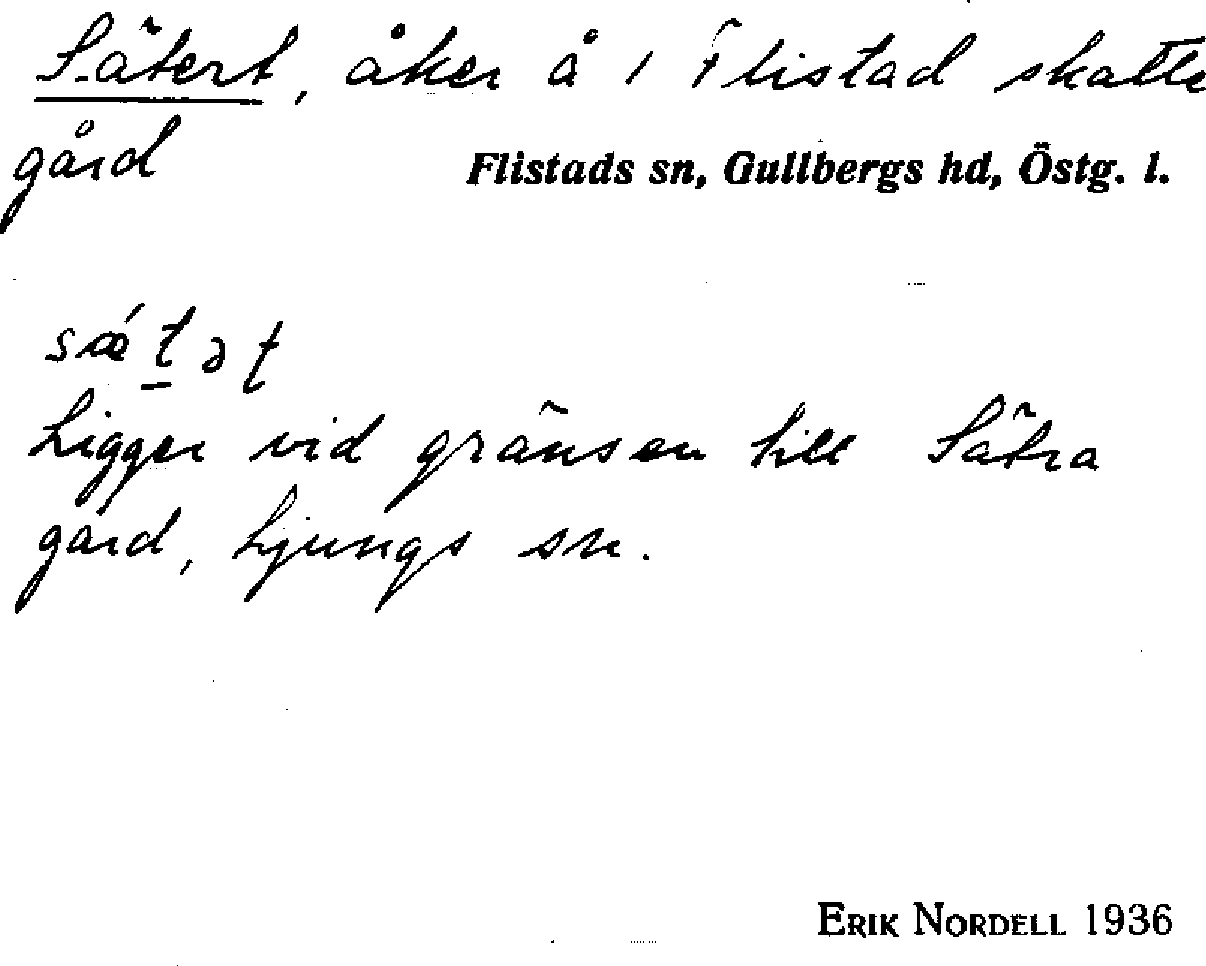 Sätert, åker å 1 Flistad skatte
gård
Flistads sn, Gullbergs hd, Östg. l.
sǽt̠əʈ
Ligger vid gränsen till Sätra
gård, Ljungs sn.
ERIK NORDELL 1936